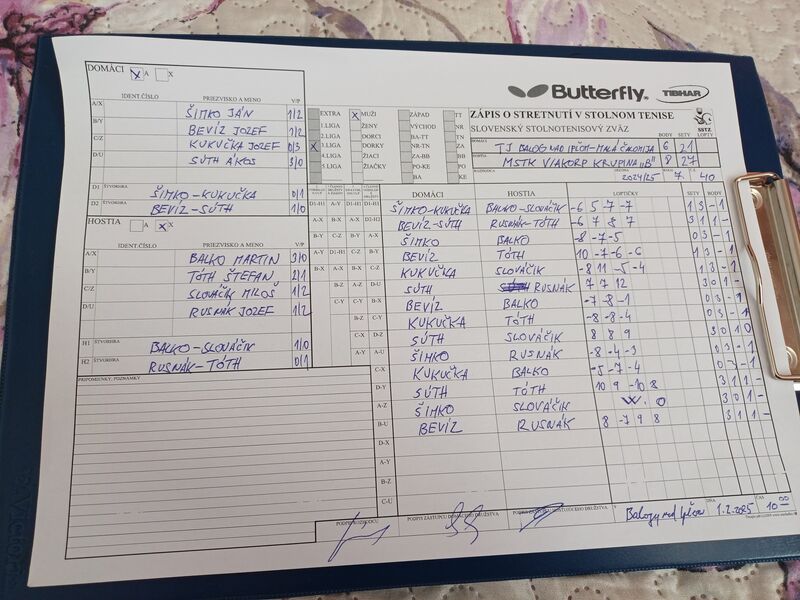 DOMÁCI X A X
Butterfly TIBHAR
IDENT.ČÍSLO PRIEZVISKO A MENO V/P
A/X ŠIMKO JÁN 1/2
B/Y BEVÍZ JOZEF 1/2
C/Z KUKUČKA JOZEF 0/3
D/U SÚTH ÁKOS 3/0
D1 ŠTVORHRA ŠIMKO-KUKUČKA 0/1
D2 ŠTVORHRA BEVÍZ-SÚTH 1/0
HOSTIA A X X
IDENT.ČÍSLO PRIEZVISKO A MENO V/P
A/X BALKO MARTIN 3/0
B/Y TÓTH ŠTEFAN 2/1
C/Z SLOVÁČIK MILOŠ 1/2
D/U RUSNÁK JOZEF 1/2
H1 ŠTVORHRA BALKO-SLOVÁČIK 1/0
H2 ŠTVORHRA RUSNÁK-TÓTH 0/1
PRIPOMIENKY, POZNÁMKY
EXTRA X MUŽI ZÁPAD TT
1.LIGA ŽENY VÝCHOD NR
2.LIGA DORCI BA-TT TN
X 3.LIGA DORKY NR-TN ZA
4.LIGA ŽIACI ZA-BB BB
5.LIGA ŽIAČKY PO-KE PO
BA KE
ZÁPIS O STRETNUTÍ V STOLNOM TENISE
SLOVENSKÝ STOLNOTENISOVÝ ZVÄZ
SSTZ
BODY SETY LOPTY
DOMÁCI TJ BALOG NAD IPĽOM-MALÁ ČALOMIJA 6 21
HOSTIA MSTK VIAKORP KRUPINA "B" 8 27
ROZHODCA 2024/25 7. 40
DOMÁCI HOSTIA LOPTIČKY SETY BODY
ŠIMKO-KUKUČKA BALKO-SLOVÁČIK -6 5 -7 -7 1 3 - 1
BEVÍZ-SÚTH RUSNÁK-TÓTH -6 7 8 7 3 1 1 -
ŠIMKO BALKO -8 -7 -5 0 3 - 1
BEVÍZ TÓTH 10 -7 -6 -6 1 3 - 1
KUKUČKA SLOVÁČIK -8 11 -5 -4 1 3 - 1
SÚTH RUSNÁK 7 7 12 3 0 1 -
BEVÍZ BALKO -7 -8 -1 0 3 - 1
KUKUČKA TÓTH -8 -8 -4 0 3 - 1
SÚTH SLOVÁČIK 8 8 9 3 0 1 0
ŠIMKO RUSNÁK -8 -4 -3 0 3 - 1
C-X KUKUČKA BALKO -5 -7 -4 0 3 - 1
D-Y SÚTH TÓTH 10 9 -10 8 3 1 1 -
A-Z ŠIMKO SLOVÁČIK W.O 3 0 1 -
B-U BEVÍZ RUSNÁK 8 -7 9 8 3 1 1 -
D-X
A-Y
B-Z
C-U
PODPIS ROZHODCU PODPIS ZÁSTUPCU DOMÁCEHO DRUŽSTVA PODPIS ZÁSTUPCU HOSŤUJÚCEHO DRUŽSTVA
V Balogu nad Ipľom DŇA 1.2.2025 ČAS 10 00